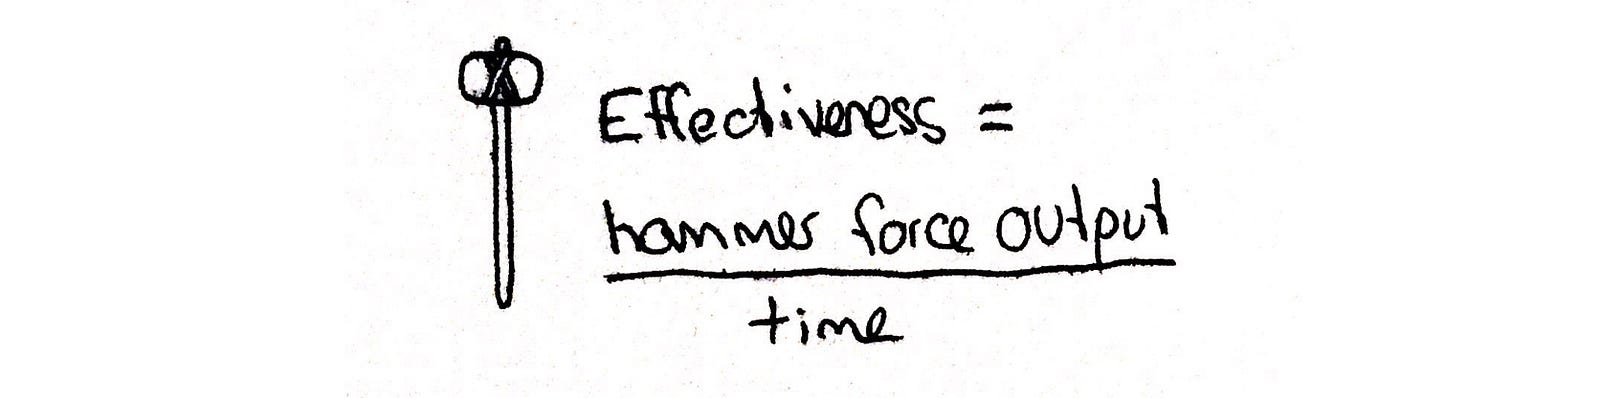 Effectiveness =
hammer force output
time